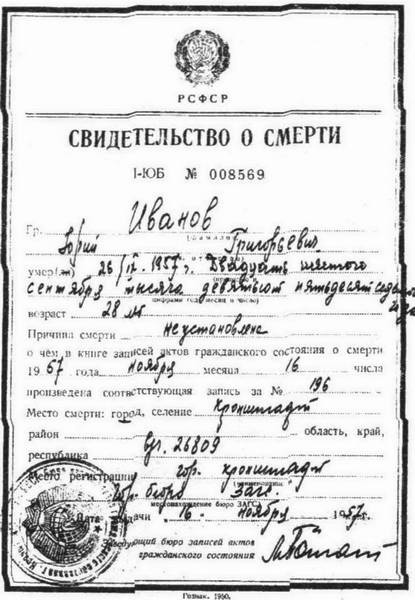 РСФСР
СВИДЕТЕЛЬСТВО О СМЕРТИ
I-ЮБ № 008569
Гр. Иванов
(фамилия)
Юрий Григорьевич
умер(ла) 26/IX.1957г. Двадцать шестого
сентября тысяча девятьсот пятьдесят седьмого
(цифрами год, месяц и число)
возраст 28 лет
Причина смерти неустановлена
о чём в книге записей актов гражданского состояния о смерти
1957 года ноября месяца 16 числа
произведена соответствующая запись за № 196
Место смерти: город, селение Кронштадт
район область, край,
республика 26809
Место регистрации гор. Кронштадт
бюро Загс
местонахождение бюро ЗАГСа
Дата выдачи 16 ноября 1957г.
Заведующий бюро записей актов
гражданского состояния
Гознак. 1950.